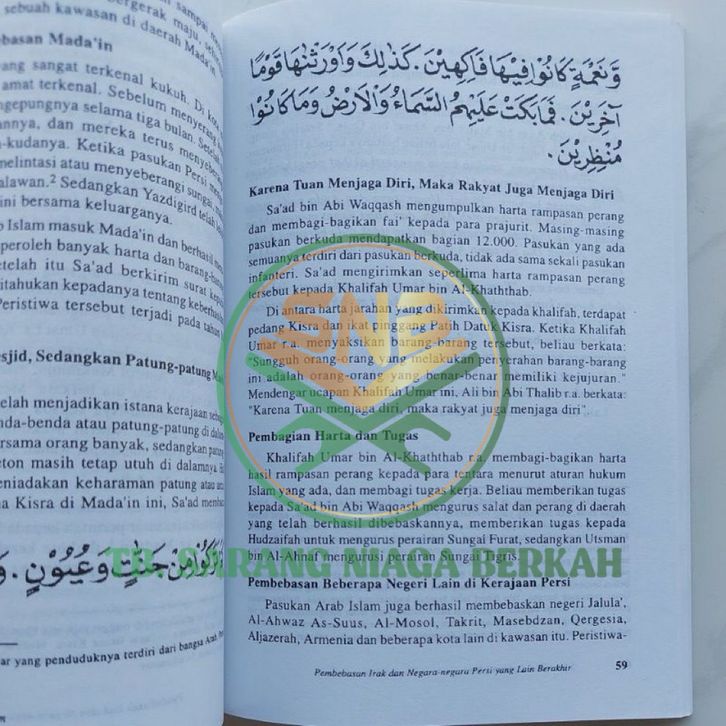 bergerak maju,
sebuah kawasan di daerah Mada'in
Mada'in
yang sangat terkenal kukuh. Di
amat terkenal. Sebelum menyerang
selama tiga bulan.
dan mereka terus
Ketika pasukan Persi
melintasi atau menyeberangi sungai,
Sedangkan Yazdigird telah
ini bersama keluarganya.
Islam masuk Mada'in dan berhasil
peroleh banyak harta dan
etelah itu Sa'ad berkirim surat
kepadanya tentang
Peristiwa tersebut terjadi pada tahun
Sedangkan Patung-patung
elah menjadikan istana kerajaan
atau patung-patung di
bersama orang banyak, sedangkan patung
masih tetap utuh di dalamnya.
keharaman patung atau
Kisra di Mada'in ini, Sa'ad
جَنَّاتٍ وَعُيُوْنٍ . وَ
yang penduduknya terdiri dari bangsa Arab
وَنَعْمَةٍ كَانُوْا فِيْهَا فَاكِهِيْنَ . كَذٰلِكَ وَاَوْرَثْنٰهَا قَوْمًا
آخَرِيْنَ . فَمَا بَكَتْ عَلَيْهِمُ السَّمَاءُ وَالْاَرْضُ وَمَا كَانُوْا
مُنْظَرِيْنَ .
Karena Tuan Menjaga Diri, Maka Rakyat Juga Menjaga Diri
Sa'ad bin Abi Waqqash mengumpulkan harta rampasan perang
dan membagi-bagikan fai' kepada para prajurit. Masing-masing
pasukan berkuda mendapatkan bagian 12.000. Pasukan yang ada
semuanya terdiri dari pasukan berkuda, tidak ada sama sekali pasukan
infanteri. Sa'ad mengirimkan seperlima harta rampasan perang
tersebut kepada Khalifah Umar bin Al-Khaththab.
Di antara harta jarahan yang dikirimkan kepada khalifah, terdapat
pedang Kisra dan ikat pinggang Patih Datuk Kisra. Ketika Khalifah
Umar r.a. menyaksikan barang-barang tersebut, beliau berkata:
"Sungguh orang-orang yang melakukan penyerahan barang-barang
ini adalah orang-orang yang benar-benar memiliki kejujuran."
Mendengar ucapan Khalifah Umar ini, Ali bin Abi Thalib r.a. berkata:
"Karena Tuan menjaga diri, maka rakyat juga menjaga diri".
SNB
Pembagian Harta dan Tugas
Khalifah Umar bin Al-Khaththab r.a. membagi-bagikan harta
hasil rampasan perang kepada para tentara menurut aturan hukum
Islam yang ada, dan membagi tugas kerja. Beliau memberikan tugas
kepada Sa'ad bin Abi Waqqash mengurus salat dan perang di daerah
yang telah berhasil dibebaskannya, memberikan tugas kepada
Hudzaifah untuk mengurus perairan Sungai Furat, sedangkan Utsman
bin Al-Ahnaf mengurusi perairan Sungai Tigris.
TB. SARANG NIAGA BERKAH
Pembebasan Beberapa Negeri Lain di Kerajaan Persi
Pasukan Arab Islam juga berhasil membebaskan negeri Jalula',
Al-Ahwaz As-Suus, Al-Mosol, Takrit, Masebdzan, Qergesia,
Aljazerah, Armenia dan beberapa kota lain di kawasan itu. Peristiwa-
Pembebasan Irak dan Negara-negara Persi yang Lain Berakhir 59